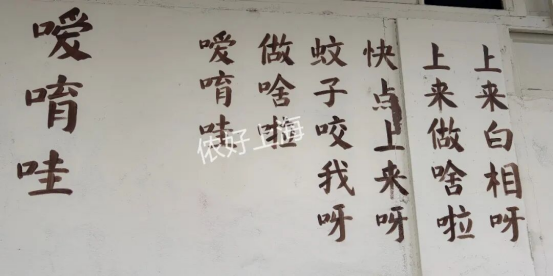 上来白相呀
上来做啥啦
快点上来呀
蚊子咬我呀
做啥啦
嗳唷哇
嗳唷哇
侬好上海